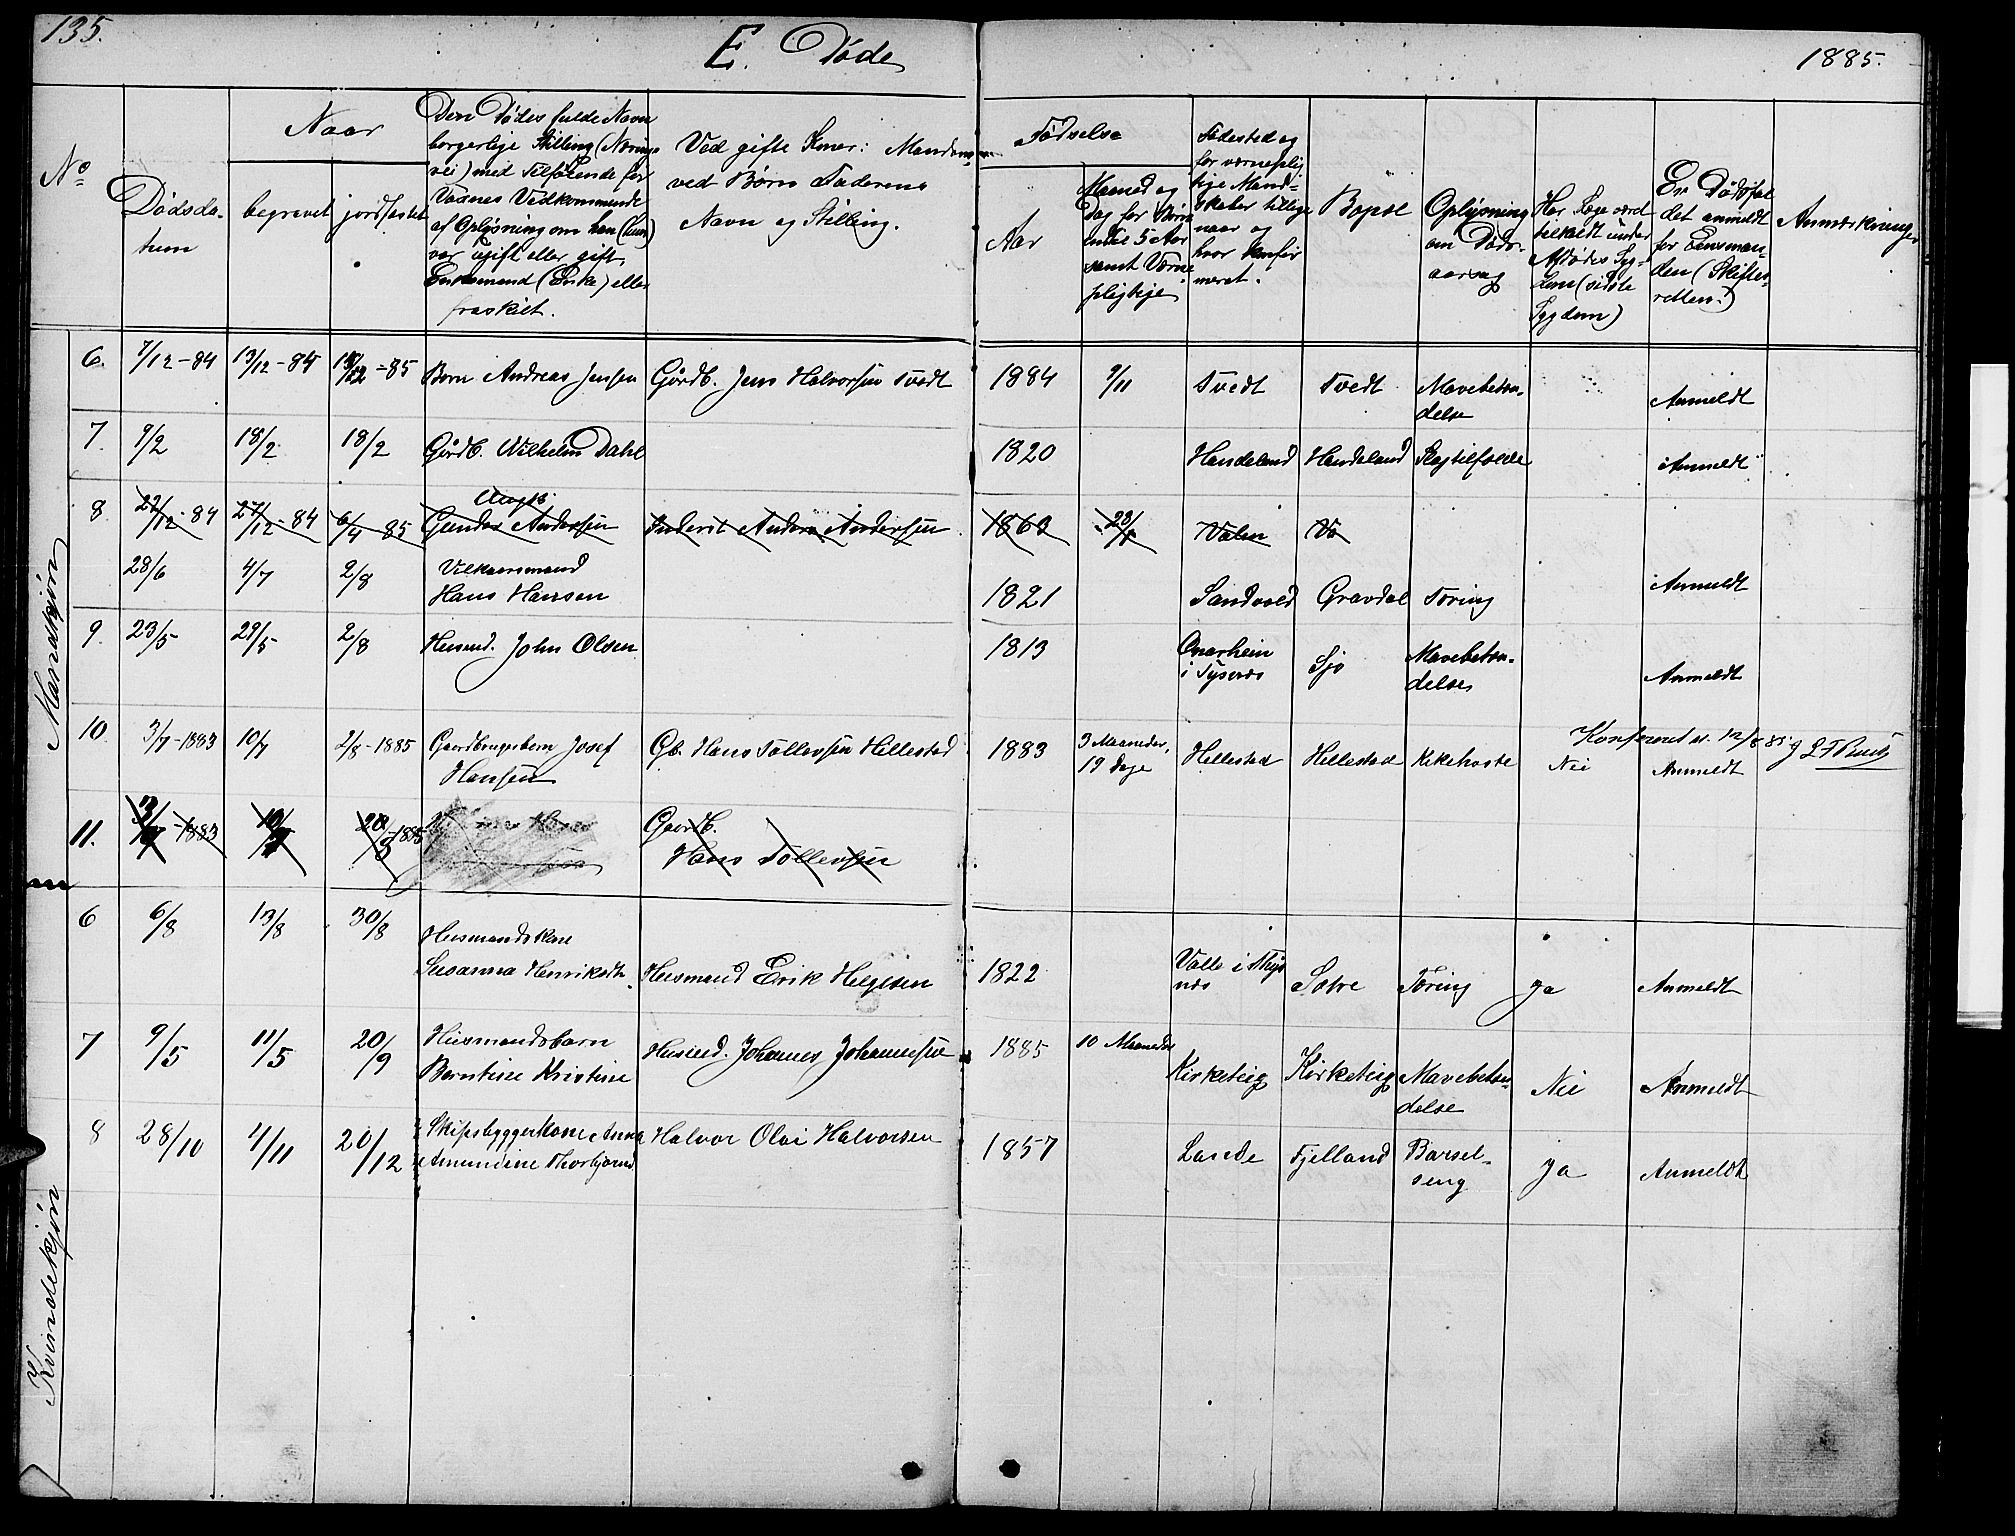 135.
E. Døde
1885.
No
Dødsda-
tum
Naar
begravet
jordfæstet
Den Dødes fulde Navn
borgerlige Stilling (Nærings
vei) med Tilføiende for
Voxnes Vedkommende
af Oplysning om han (hun)
var ugift eller gift,
Enkemand (Enke) eller
fraskilt.
Ved gifte Koner: Mandens
ved Børn Faderens
Navn og Stilling.
Fødsels
Aar
Maaned og
Dag for Børn
indtil 5 Aar
samt Værne-
pligtige
Fødested og
for værneplig
tige Mand-
skaber tillige
naar og
hvor konfir
meret.
Bopæl
Oplysning
om Døds-
aarsag
Har Læge været
tilkaldt under
Afdødes Syg-
dom (sidste
Sygdom)
Er Dødsfal
det anmeldt
for Lensman-
den (Skifte-
retten.)
Anmærkninger
Mandkjøn
6. 7/12-84 13/12-84 -85 Barn Andreas Jensen Gårdb. Jens Halvorsen Tvedt 1884 9/11 Tvedt Tvedt Mavebetæn-
delse Anmeldt
7. 9/2 18/2 18/2 Gårdb. Wilhelm Dahl 1820 Handeland Handeland Slagtilfælde Anmeldt
Ungk.
8. 22/12-84 27/12-84 6/4-85 Gunder Andersen Inderst Anders Andersen 1863 Valen Va
28/6 4/7 2/8 Vilkaarsmand
Hans Hansen 1821 Sandvold Gravdal Tæring Anmeldt
9. 23/5 29/5 2/8 Husmd. John Olsen 1813 Onarheim
i Tysenæs Sjo Mavebetæn-
delse Anmeldt
Konfereret d. 12/8 85
10 3/7-1883 10/7 2/8-1885 Gaardbrugerbarn Josef
Hansen Gb. Hans Tollevsen Hillestad 1883 3 Maaneder,
19 Dage Hillestad Hillestad Kikhoste Nei Anmeldt
11. -1883 -1885 Gaardb.
Hans Tollevsen
Kvindekjøn
6 6/8 13/8 30/8 Husmandskone
Susanna Henriksdtr. Husmand Erik Helgesen 1822 Valle i Thys
næs Sætre Tæring Ja Anmeldt
7 9/5 11/5 20/9 Husmandsbarn
Berntine Kristine Husmd. Johannes Johannesen 1885 10 Maaneder Kirketeig Kirketeig Mavebetæn-
delse Nei Anmeldt
8 28/10 4/11 20/12 Skipsbyggerkone Anna
Amundine Thorbjørnsd Halvor Olai Halvorsen 1857 Lande Fjelland Barsel-
seng Ja Anmeldt